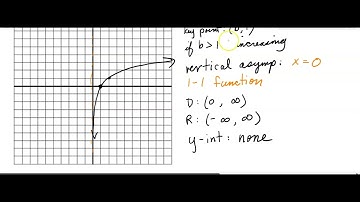 key point: (0,
if b > 1 increasing
vertical asymp: x=0
1-1 function
D: (0, ∞)
R: (-∞, ∞)
y-int: none